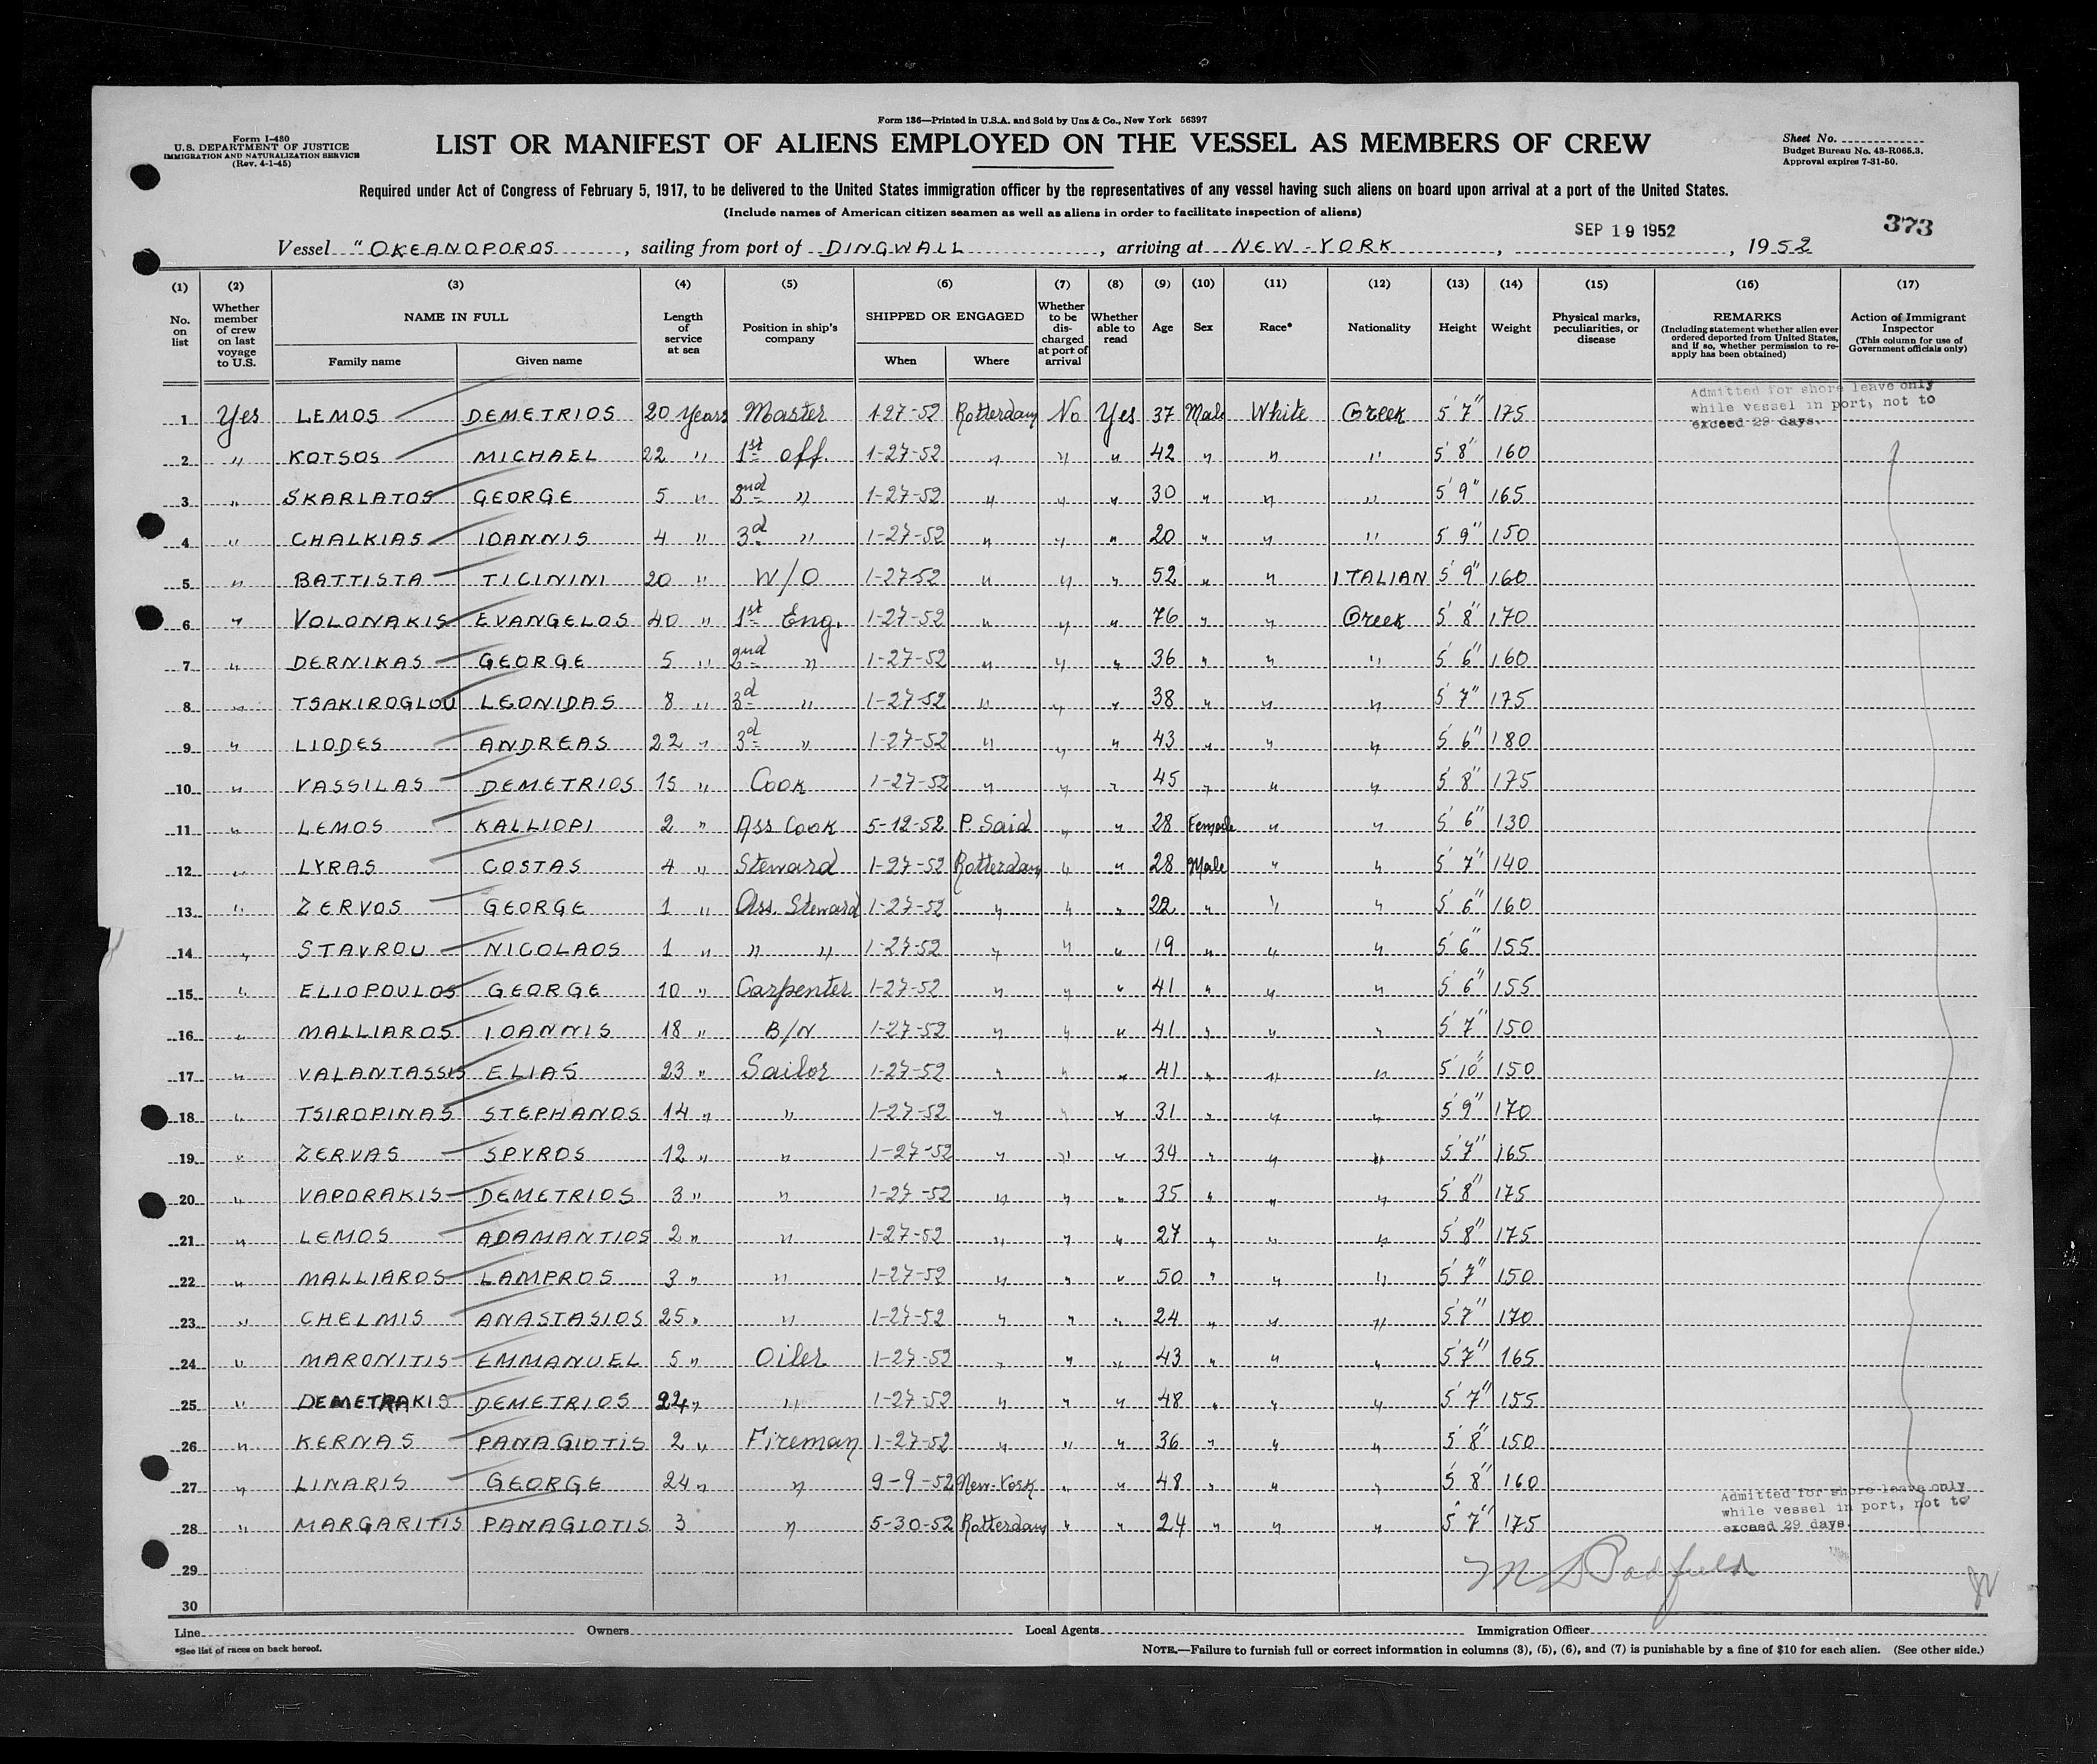 Form 136—Printed in U.S.A. and Sold by Unz & Co., New York 56397
Form I-480
U.S. DEPARTMENT OF JUSTICE
IMMIGRATION AND NATURALIZATION SERVICE
(Rev. 4-1-45)
LIST OR MANIFEST OF ALIENS EMPLOYED ON THE VESSEL AS MEMBERS OF CREW
Sheet No.
Budget Bureau No. 43-R065.3.
Approval expires 7-31-50.
Required under Act of Congress of February 5, 1917, to be delivered to the United States immigration officer by the representatives of any vessel having such aliens on board upon arrival at a port of the United States.
(Include names of American citizen seamen as well as aliens in order to facilitate inspection of aliens)
SEP 19 1952
373
Vessel "OKEANOPOROS, sailing from port of DINGWALL, arriving at NEW-YORK, 1952
(1) (2) (3) (4) (5) (6) (7) (8) (9) (10) (11) (12) (13) (14) (15) (16) (17)
No. on list
Whether member of crew on last voyage to U.S.
NAME IN FULL
Family name Given name
Length of service at sea
Position in ship's company
SHIPPED OR ENGAGED
When Where
Whether to be discharged at port of arrival
Whether able to read
Age
Sex
Race*
Nationality
Height
Weight
Physical marks, peculiarities, or disease
REMARKS
(Including statement whether alien ever ordered deported from United States, and if so, whether permission to reapply has been obtained)
Action of Immigrant Inspector
(This column for use of Government officials only)
Admitted for shore leave only
while vessel in port, not to
exceed 29 days.
1 Yes LEMOS DEMETRIOS 20 Years Master 1-27-52 Rotterdam No Yes 37 Male White Greek 5'7" 175
2 " KOTSOS MICHAEL 22 " 1st off. 1-27-52 " " " 42 " " " 5'8" 160
3 " SKARLATOS GEORGE 5 " 2nd " 1-27-52 " " " 30 " " " 5'9" 165
4 " CHALKIAS IOANNIS 4 " 3d " 1-27-52 " " " 20 " " " 5'9" 150
5 " BATTISTA TICININI 20 " W/O 1-27-52 " " " 52 " " ITALIAN 5'9" 160
6 " VOLONAKIS EVANGELOS 40 " 1st Eng. 1-27-52 " " " 76 " " Greek 5'8" 170
7 " DERNIKAS GEORGE 5 " 2nd " 1-27-52 " " " 36 " " " 5'6" 160
8 " TSAKIROGLOU LEONIDAS 8 " 3d " 1-27-52 " " " 38 " " " 5'7" 175
9 " LIODES ANDREAS 22 " 3d " 1-27-52 " " " 43 " " " 5'6" 180
10 " VASSILAS DEMETRIOS 15 " Cook 1-27-52 " " " 45 " " " 5'8" 175
11 " LEMOS KALLIOPI 2 " Ass Cook 5-12-52 P. Said " " 28 Female " " 5'6" 130
12 " LYRAS COSTAS 4 " Steward 1-27-52 Rotterdam " " 28 Male " " 5'7" 140
13 " ZERVOS GEORGE 1 " Ass. Steward 1-27-52 " " " 22 " " " 5'6" 160
14 " STAVROU NICOLAOS 1 " " " 1-27-52 " " " 19 " " " 5'6" 155
15 " ELIOPOULOS GEORGE 10 " Carpenter 1-27-52 " " " 41 " " " 5'6" 155
16 " MALLIAROS IOANNIS 18 " B/N 1-27-52 " " " 41 " " " 5'7" 150
17 " VALANTASSIS ELIAS 23 " Sailor 1-27-52 " " " 41 " " " 5'10" 150
18 " TSIROPINAS STEPHANOS 14 " " 1-27-52 " " " 31 " " " 5'9" 170
19 " ZERVAS SPYROS 12 " " 1-27-52 " " " 34 " " " 5'7" 165
20 " VAPORAKIS DEMETRIOS 3 " " 1-27-52 " " " 35 " " " 5'8" 175
21 " LEMOS ADAMANTIOS 2 " " 1-27-52 " " " 27 " " " 5'8" 175
22 " MALLIAROS LAMPROS 3 " " 1-27-52 " " " 50 " " " 5'7" 150
23 " CHELMIS ANASTASIOS 25 " " 1-27-52 " " " 24 " " " 5'7" 170
24 " MARONITIS EMMANUEL 5 " Oiler 1-27-52 " " " 43 " " " 5'7" 165
25 " DEMETRAKIS DEMETRIOS 24 " " 1-27-52 " " " 48 " " " 5'7" 155
26 " KERNAS PANAGIOTIS 2 " Fireman 1-27-52 " " " 36 " " " 5'8" 150
27 " LINARIS GEORGE 24 " " 9-9-52 New-York " " 48 " " " 5'8" 160
28 " MARGARITIS PANAGIOTIS 3 " 5-30-52 Rotterdam " " 24 " " " 5'7" 175
Admitted for shore leave only
while vessel in port, not to
exceed 29 days.
29
30
Line Owners Local Agents Immigration Officer
*See list of races on back hereof.
NOTE.—Failure to furnish full or correct information in columns (3), (5), (6), and (7) is punishable by a fine of $10 for each alien. (See other side.)